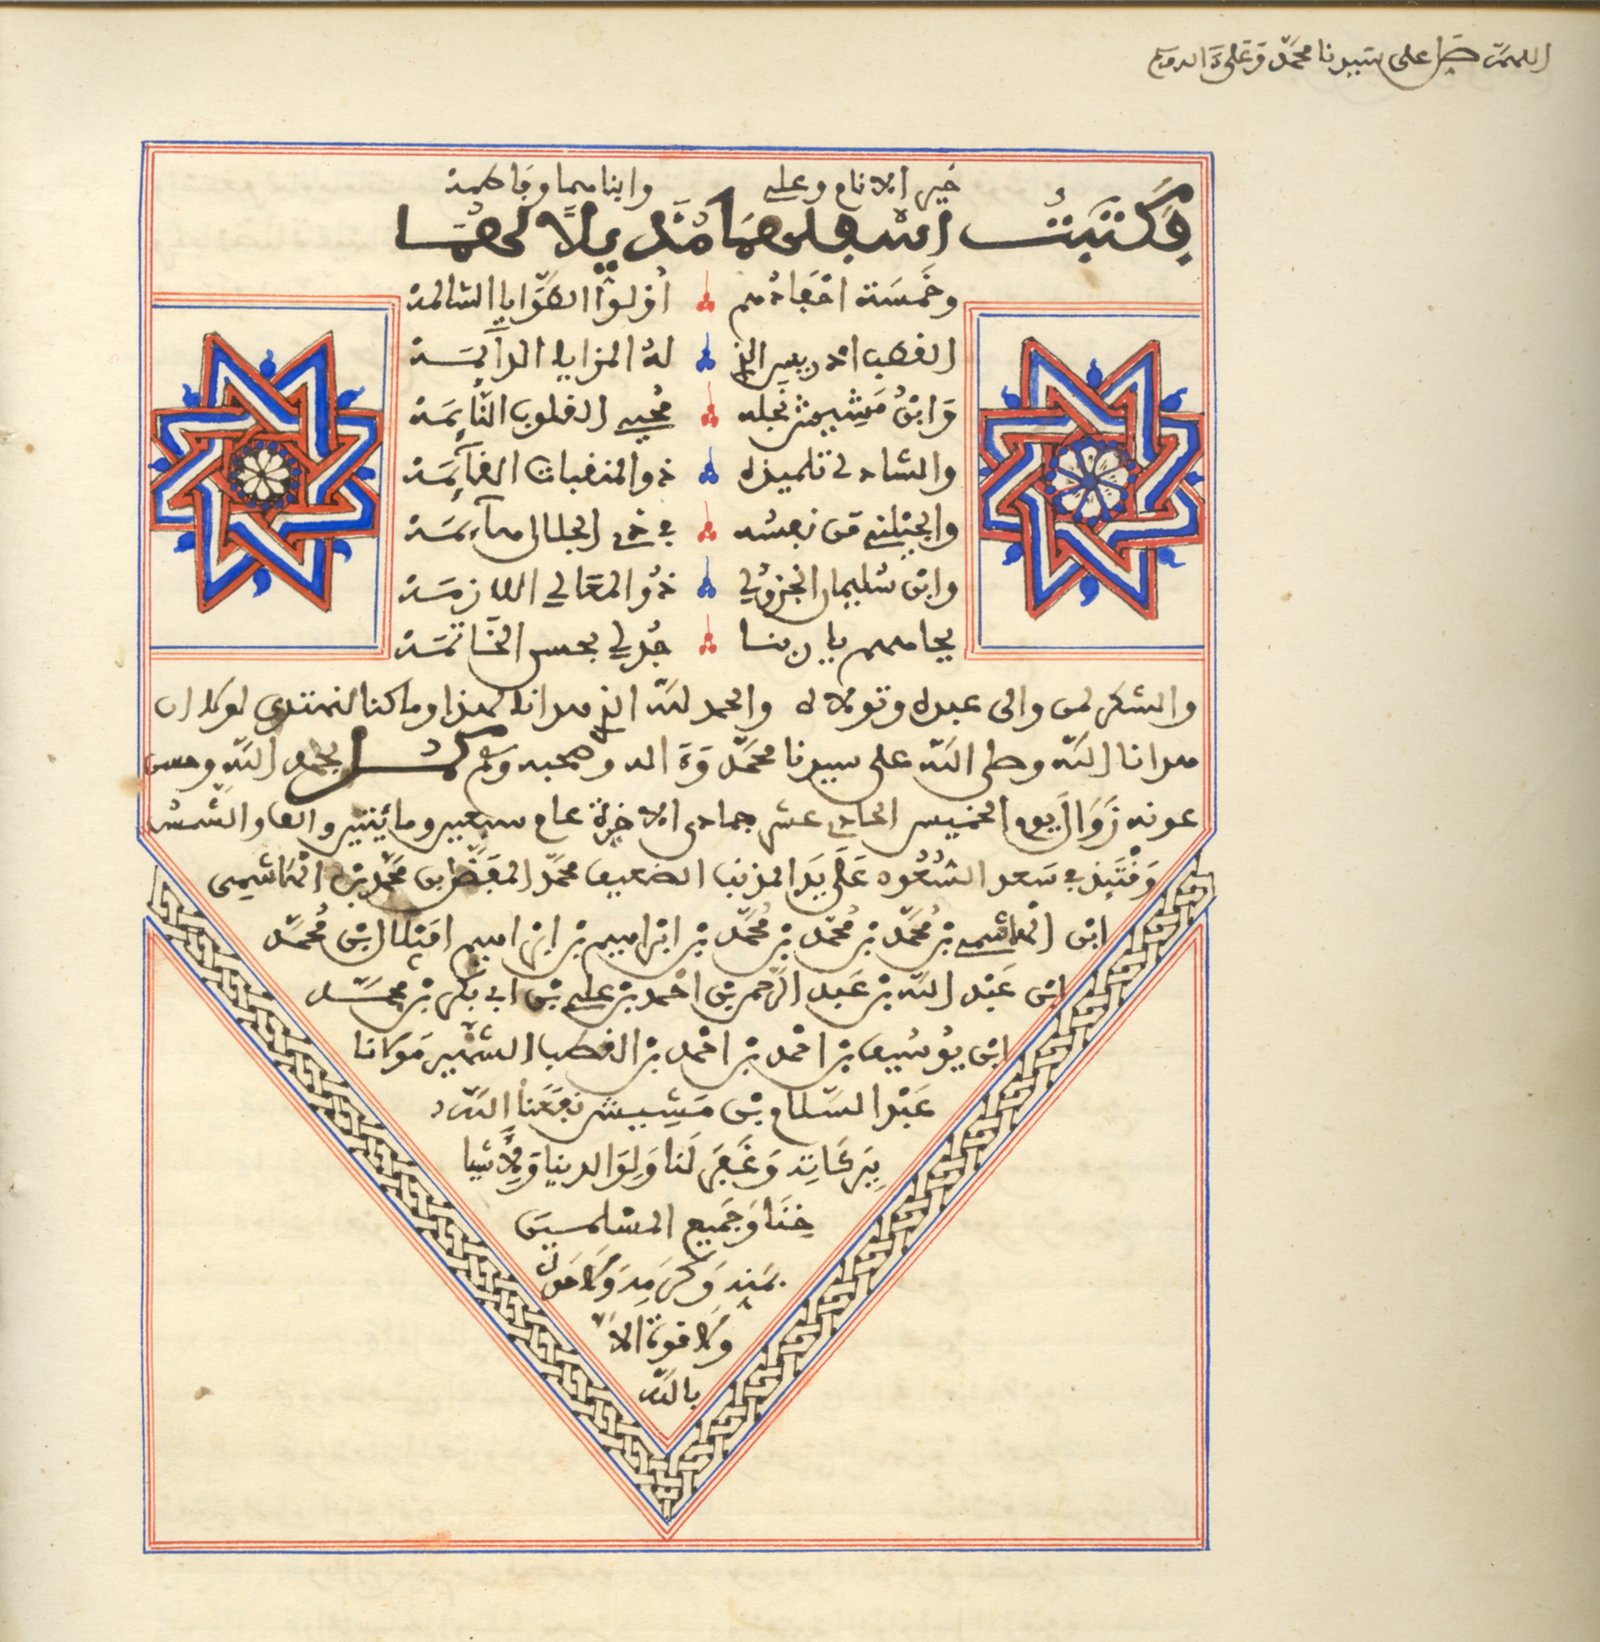 اللهم صل على سيدنا محمد وعلى ءاله
خير الانام وعلي وابناهما وفاطمه
فكتبت اسفلهما مذيلا لهما
وخمسة احفادهم اولوا الطوايا السالمه
القطب ادريس الذي له المزايا الدآئمه
وابن مشيش نجله محيي القلوب النآئمه
والشاذلي تلميذه ذو المنقبات القآئمه
والجيلني من نفسه في ذي الجلال هآئمه
وابن سليمان الجزولي ذو المعالي اللازمه
بجاههم يا ربنا جد لي بحسن الخاتمه
والشكر لمن والى عبده وتولاه والحمد لله الذي هدانا لهذا وما كنا لنهتدي لولا ان
هدانا الله وصلى الله على سيدنا محمد وءاله وصحبه وسلم كمل بحمد الله وحسن
عونه زوال يوم الخميس الحادي عشر جمادى الاخرة عام سبعين ومائتين والف والشمس
وقتئذ في سعد السعود على يد المذنب الضعيف محمد المفضل بن محمد بن الهاشمي
ابن الهاشمي بن محمد بن محمد بن محمد بن ابراهيم بن ابراهيم امنلال بن محمد
ابن عبد الله بن عبد الرحمن بن احمد بن علي بن ابي بكر بن محمد
ابن يوسف بن احمد بن احمد بن القطب الشهير مولانا
عبد السلام بن مشيش نفعنا الله
ببركاته وغفر لنا ولوالدينا ولأشيا
خنا وجميع المسلمين
بمنه وكرمه ولا حول
ولا قوة الا
بالله